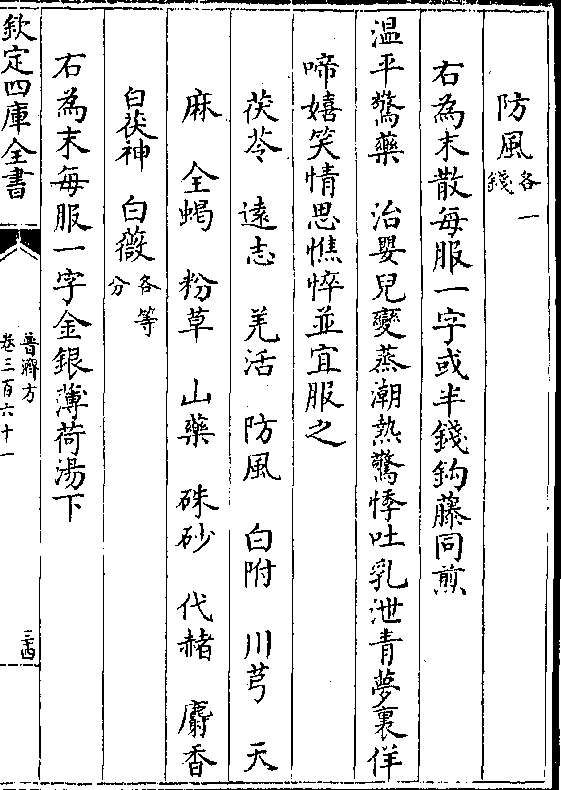 防風各一錢
右為末散每服一字或半錢鈎藤同煎
温平驚藥 治嬰兒變蒸潮熱驚悸吐乳泄青夢裏佯
啼嬉笑情思憔悴並宜服之
茯苓 遠志 羌活 防風 白附 川芎 天
麻 全蝎 粉草 山藥 硃砂 代赭 麝香
白茯神 白薇各等分
右為末每服一字金銀薄荷湯下
欽定四庫全書
普濟方
卷三百六十一
三四